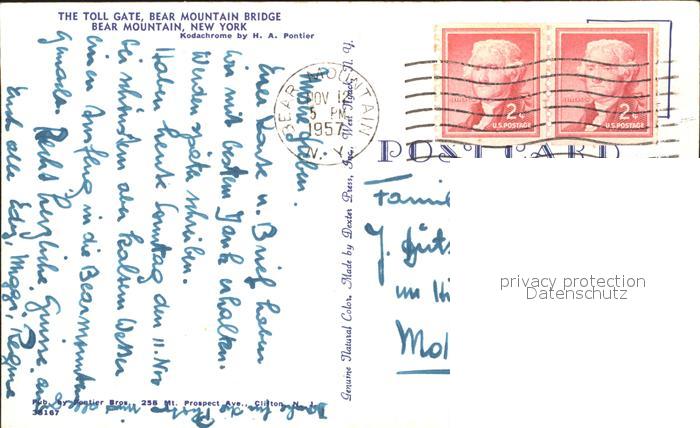 THE TOLL GATE, BEAR MOUNTAIN BRIDGE
BEAR MOUNTAIN, NEW YORK
Kodachrome by H. A. Pontier
Eure Karte u. Brief haben
wir mit bestem Dank erhalten.
Werden später schreiben.
Haben heute Sonntag den 11. Nov
bei schönstem aber kaltem Wetter
einen Ausflug in die Bearmountain
gemacht. Recht herzliche Grüsse an
Euch alle Edy, Meggi, Regine
Pub. by Pontier Bros., 258 Mt. Prospect Ave., Clifton, N. J.
38167
Genuine Natural Color. Made by Dexter Press, Inc. West Nyack, N. Y.
BEAR MOUNTAIN
NOV 12
5 PM
1957
N. Y.
2¢
U.S. POSTAGE
2¢
U.S. POSTAGE
POST CARD
Famil
J.
im
Mol
privacy protection
Datenschutz